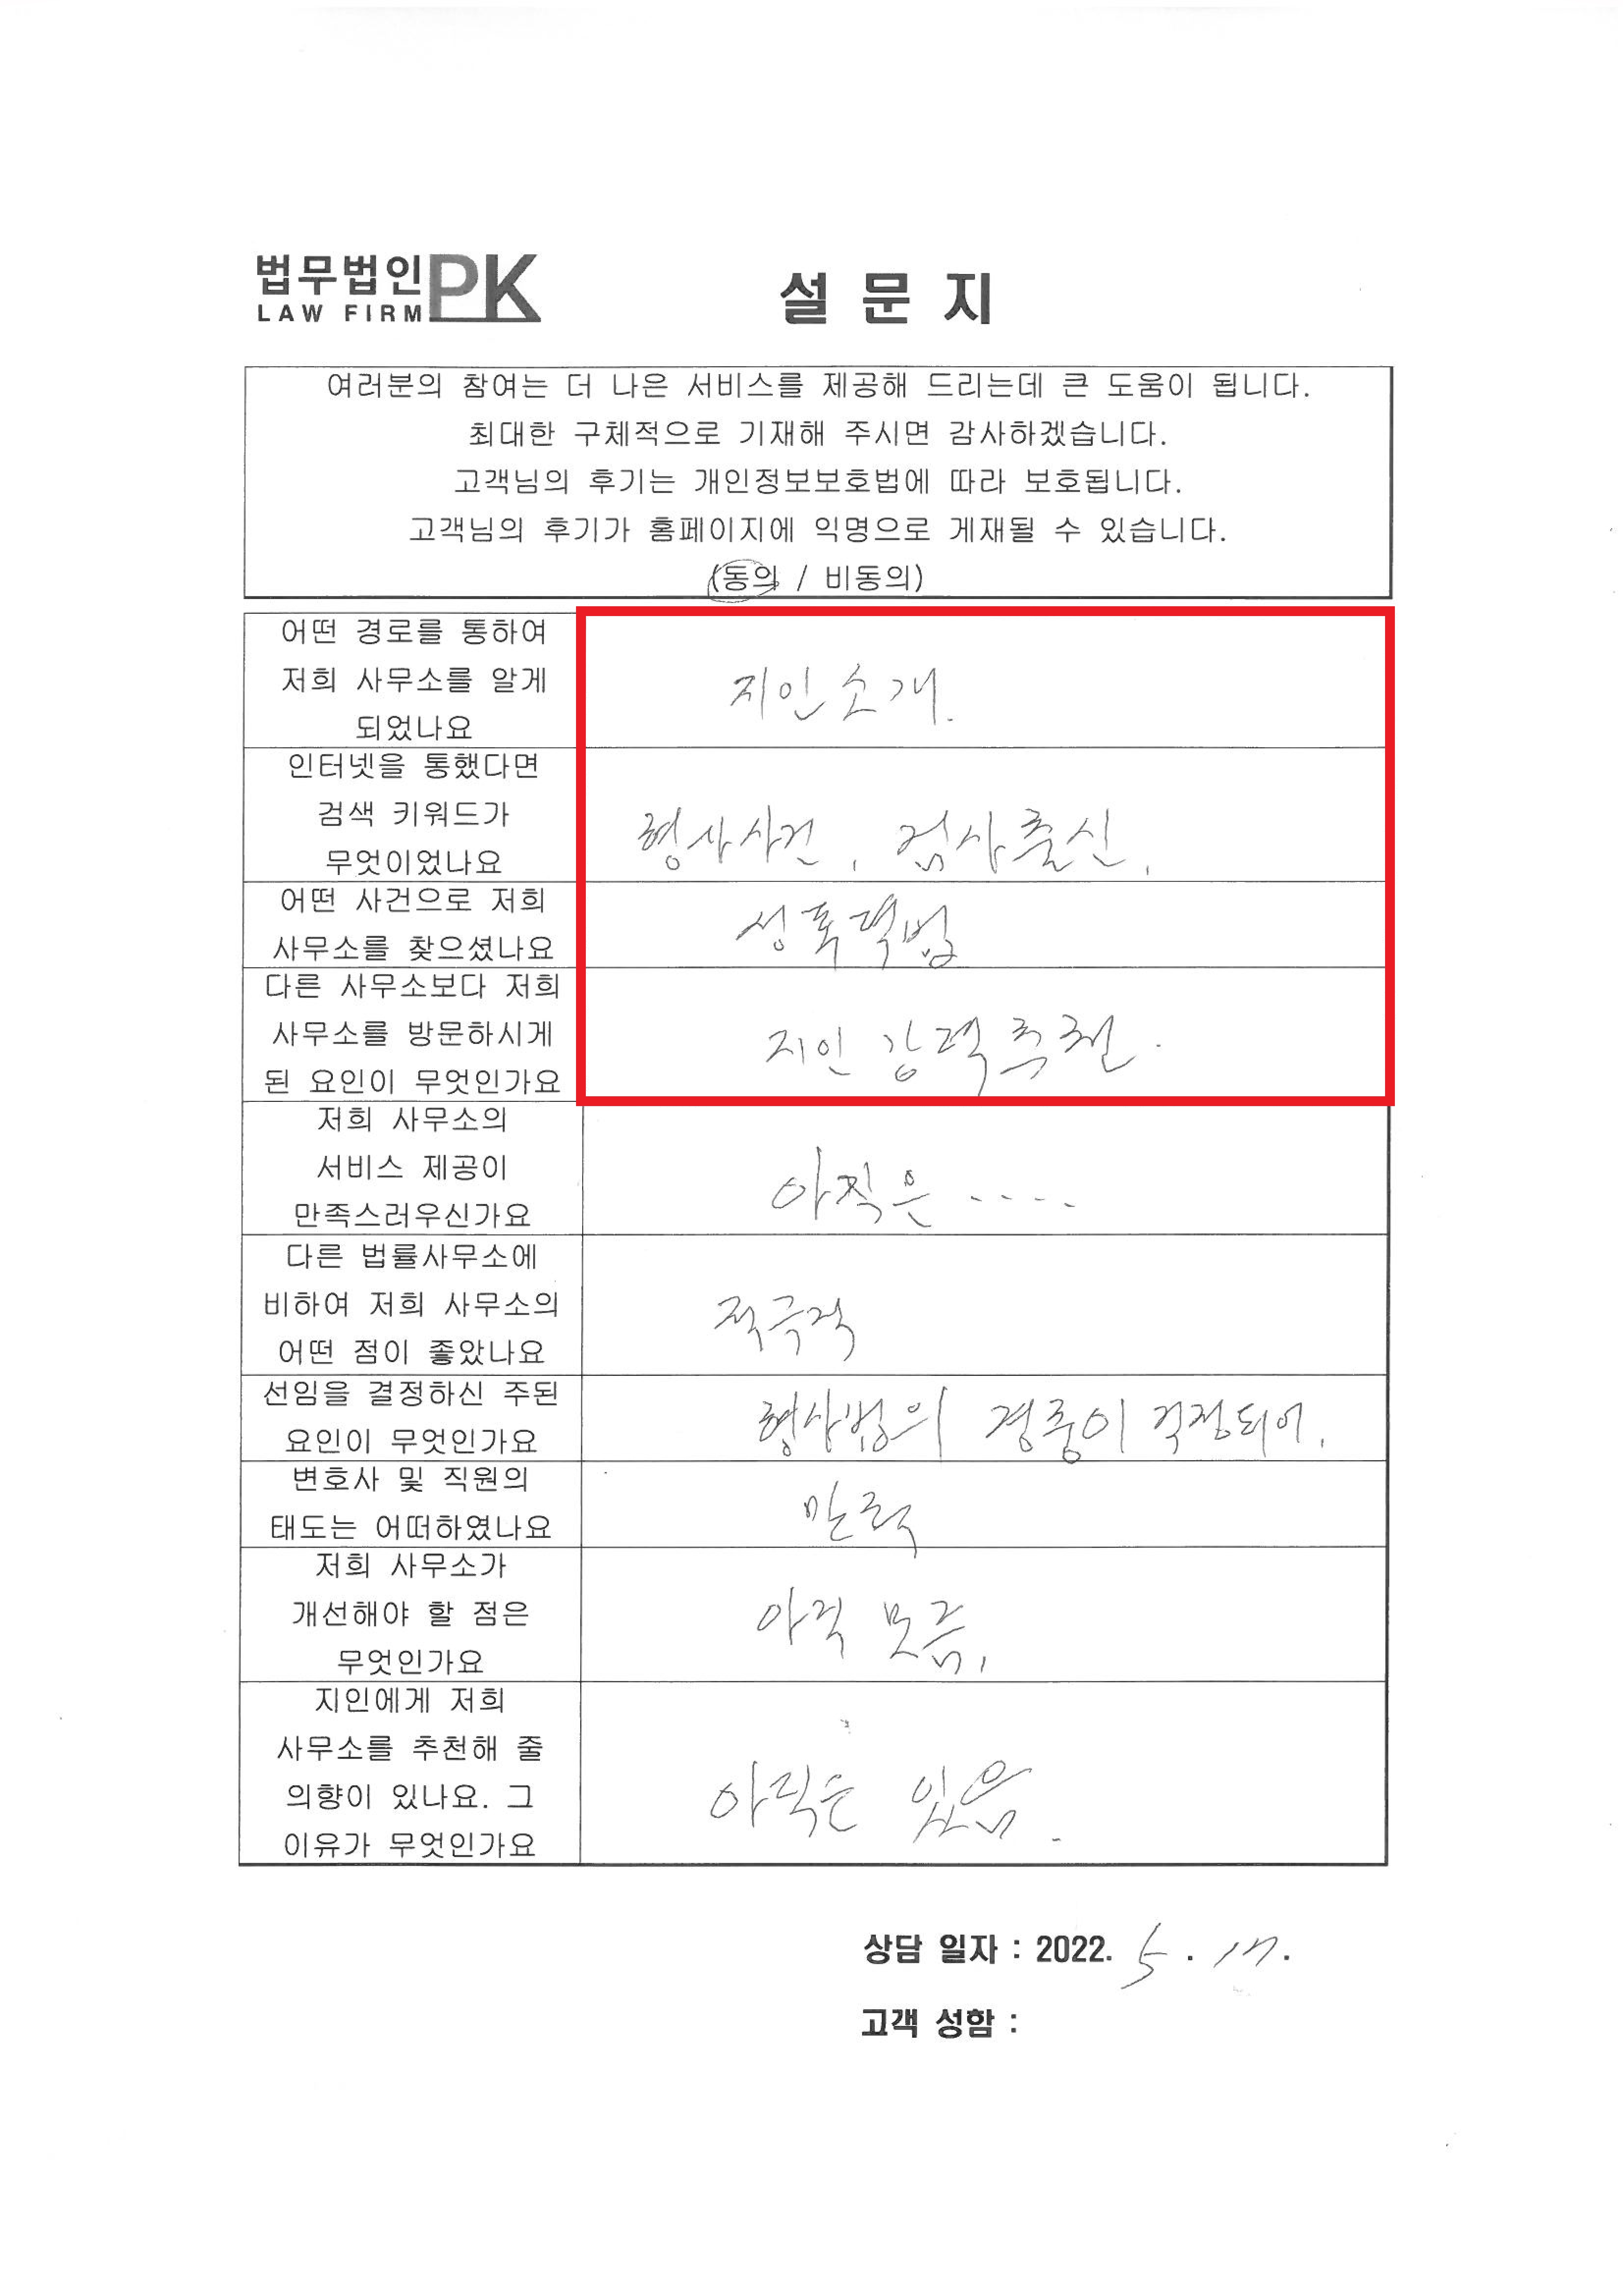 법무법인 PK
LAW FIRM
설 문 지
여러분의 참여는 더 나은 서비스를 제공해 드리는데 큰 도움이 됩니다.
최대한 구체적으로 기재해 주시면 감사하겠습니다.
고객님의 후기는 개인정보보호법에 따라 보호됩니다.
고객님의 후기가 홈페이지에 익명으로 게재될 수 있습니다.
(동의 / 비동의)
어떤 경로를 통하여
저희 사무소를 알게
되었나요
지인소개.
인터넷을 통했다면
검색 키워드가
무엇이었나요
형사사건, 검사출신,
어떤 사건으로 저희
사무소를 찾으셨나요
성폭력법
다른 사무소보다 저희
사무소를 방문하시게
된 요인이 무엇인가요
지인 강력추천.
저희 사무소의
서비스 제공이
만족스러우신가요
아직은 ....
다른 법률사무소에
비하여 저희 사무소의
어떤 점이 좋았나요
적극적
선임을 결정하신 주된
요인이 무엇인가요
형사법의 경중이 걱정되어,
변호사 및 직원의
태도는 어떠하였나요
만족
저희 사무소가
개선해야 할 점은
무엇인가요
아직 모름,
지인에게 저희
사무소를 추천해 줄
의향이 있나요. 그
이유가 무엇인가요
아직은 있음.
상담 일자 : 2022. 5. 17.
고객 성함 :